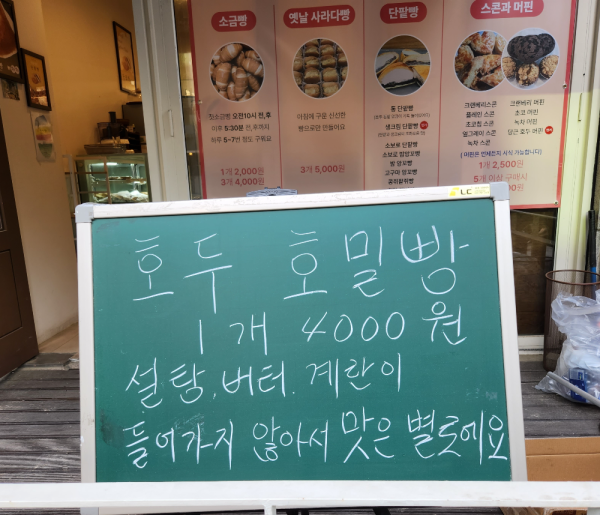 소금빵
옛날 사라다빵
단팥빵
스콘과 머핀
오전10시 전,후
이후 5:30분 전,후까지
하루 5~7번 정도 구워요
1개 2,000원
3개 4,000원
아침에 구운 신선한
빵으로만 만들어요
3개 5,000원
통 단팥빵
생크림 단팥빵
소보로 단팥빵
밤 앙꼬빵
고구마 앙꼬빵
크랜베리스콘
플레인 스콘
초코칩 스콘
얼그레이 스콘
녹차 스콘
크랜베리 머핀
초코 머핀
녹차 머핀
당근 호두 머핀
1개 2,500원
5개 이상 구매시
LC
호두 호밀빵
1개 4000원
설탕, 버터. 계란이
들어가지 않아서 맛은 별로에요